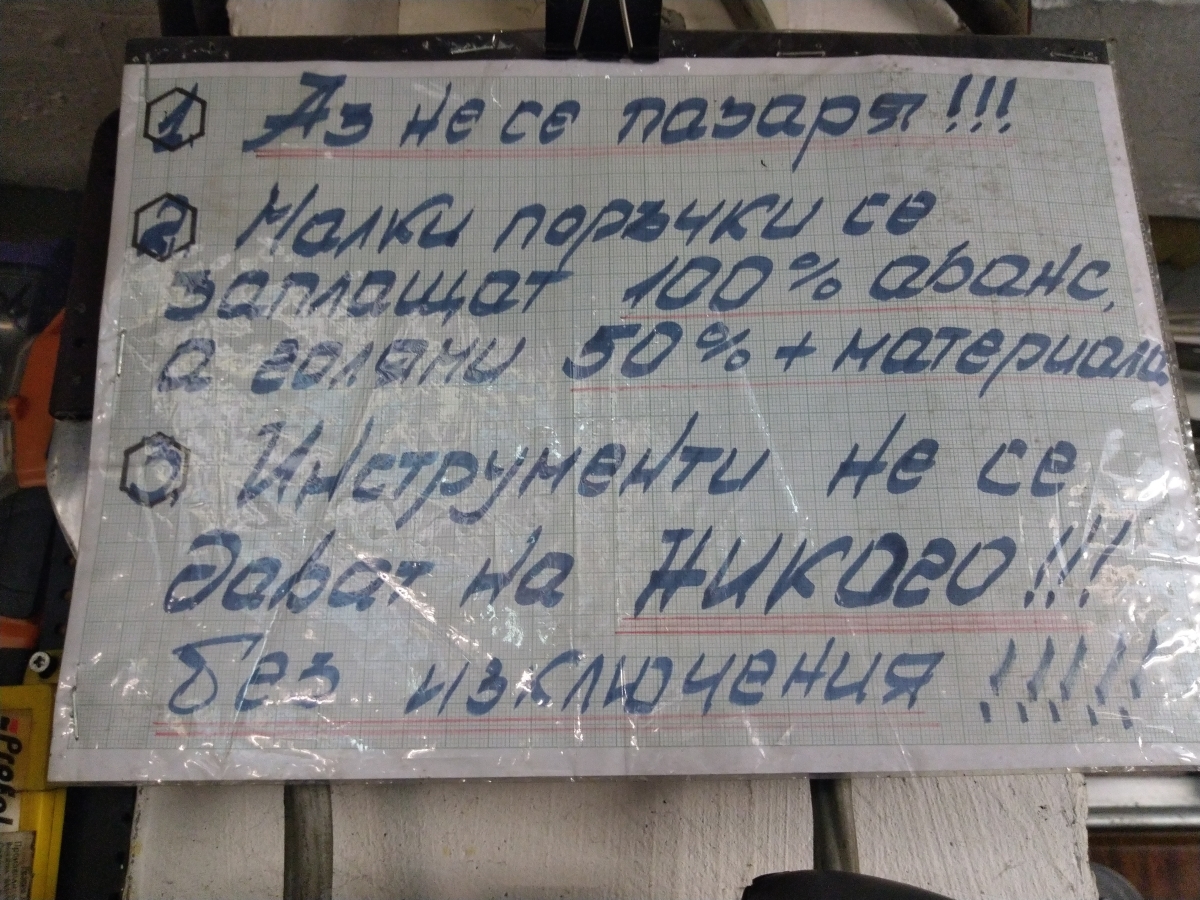 1 Аз не се пазаря!!!
2 Малки поръчки се
заплащат 100% аванс,
а големи 50% + материала
3 Инструменти не се
дават на НИКОГО!!!
без изключения !!!!!
Prefol